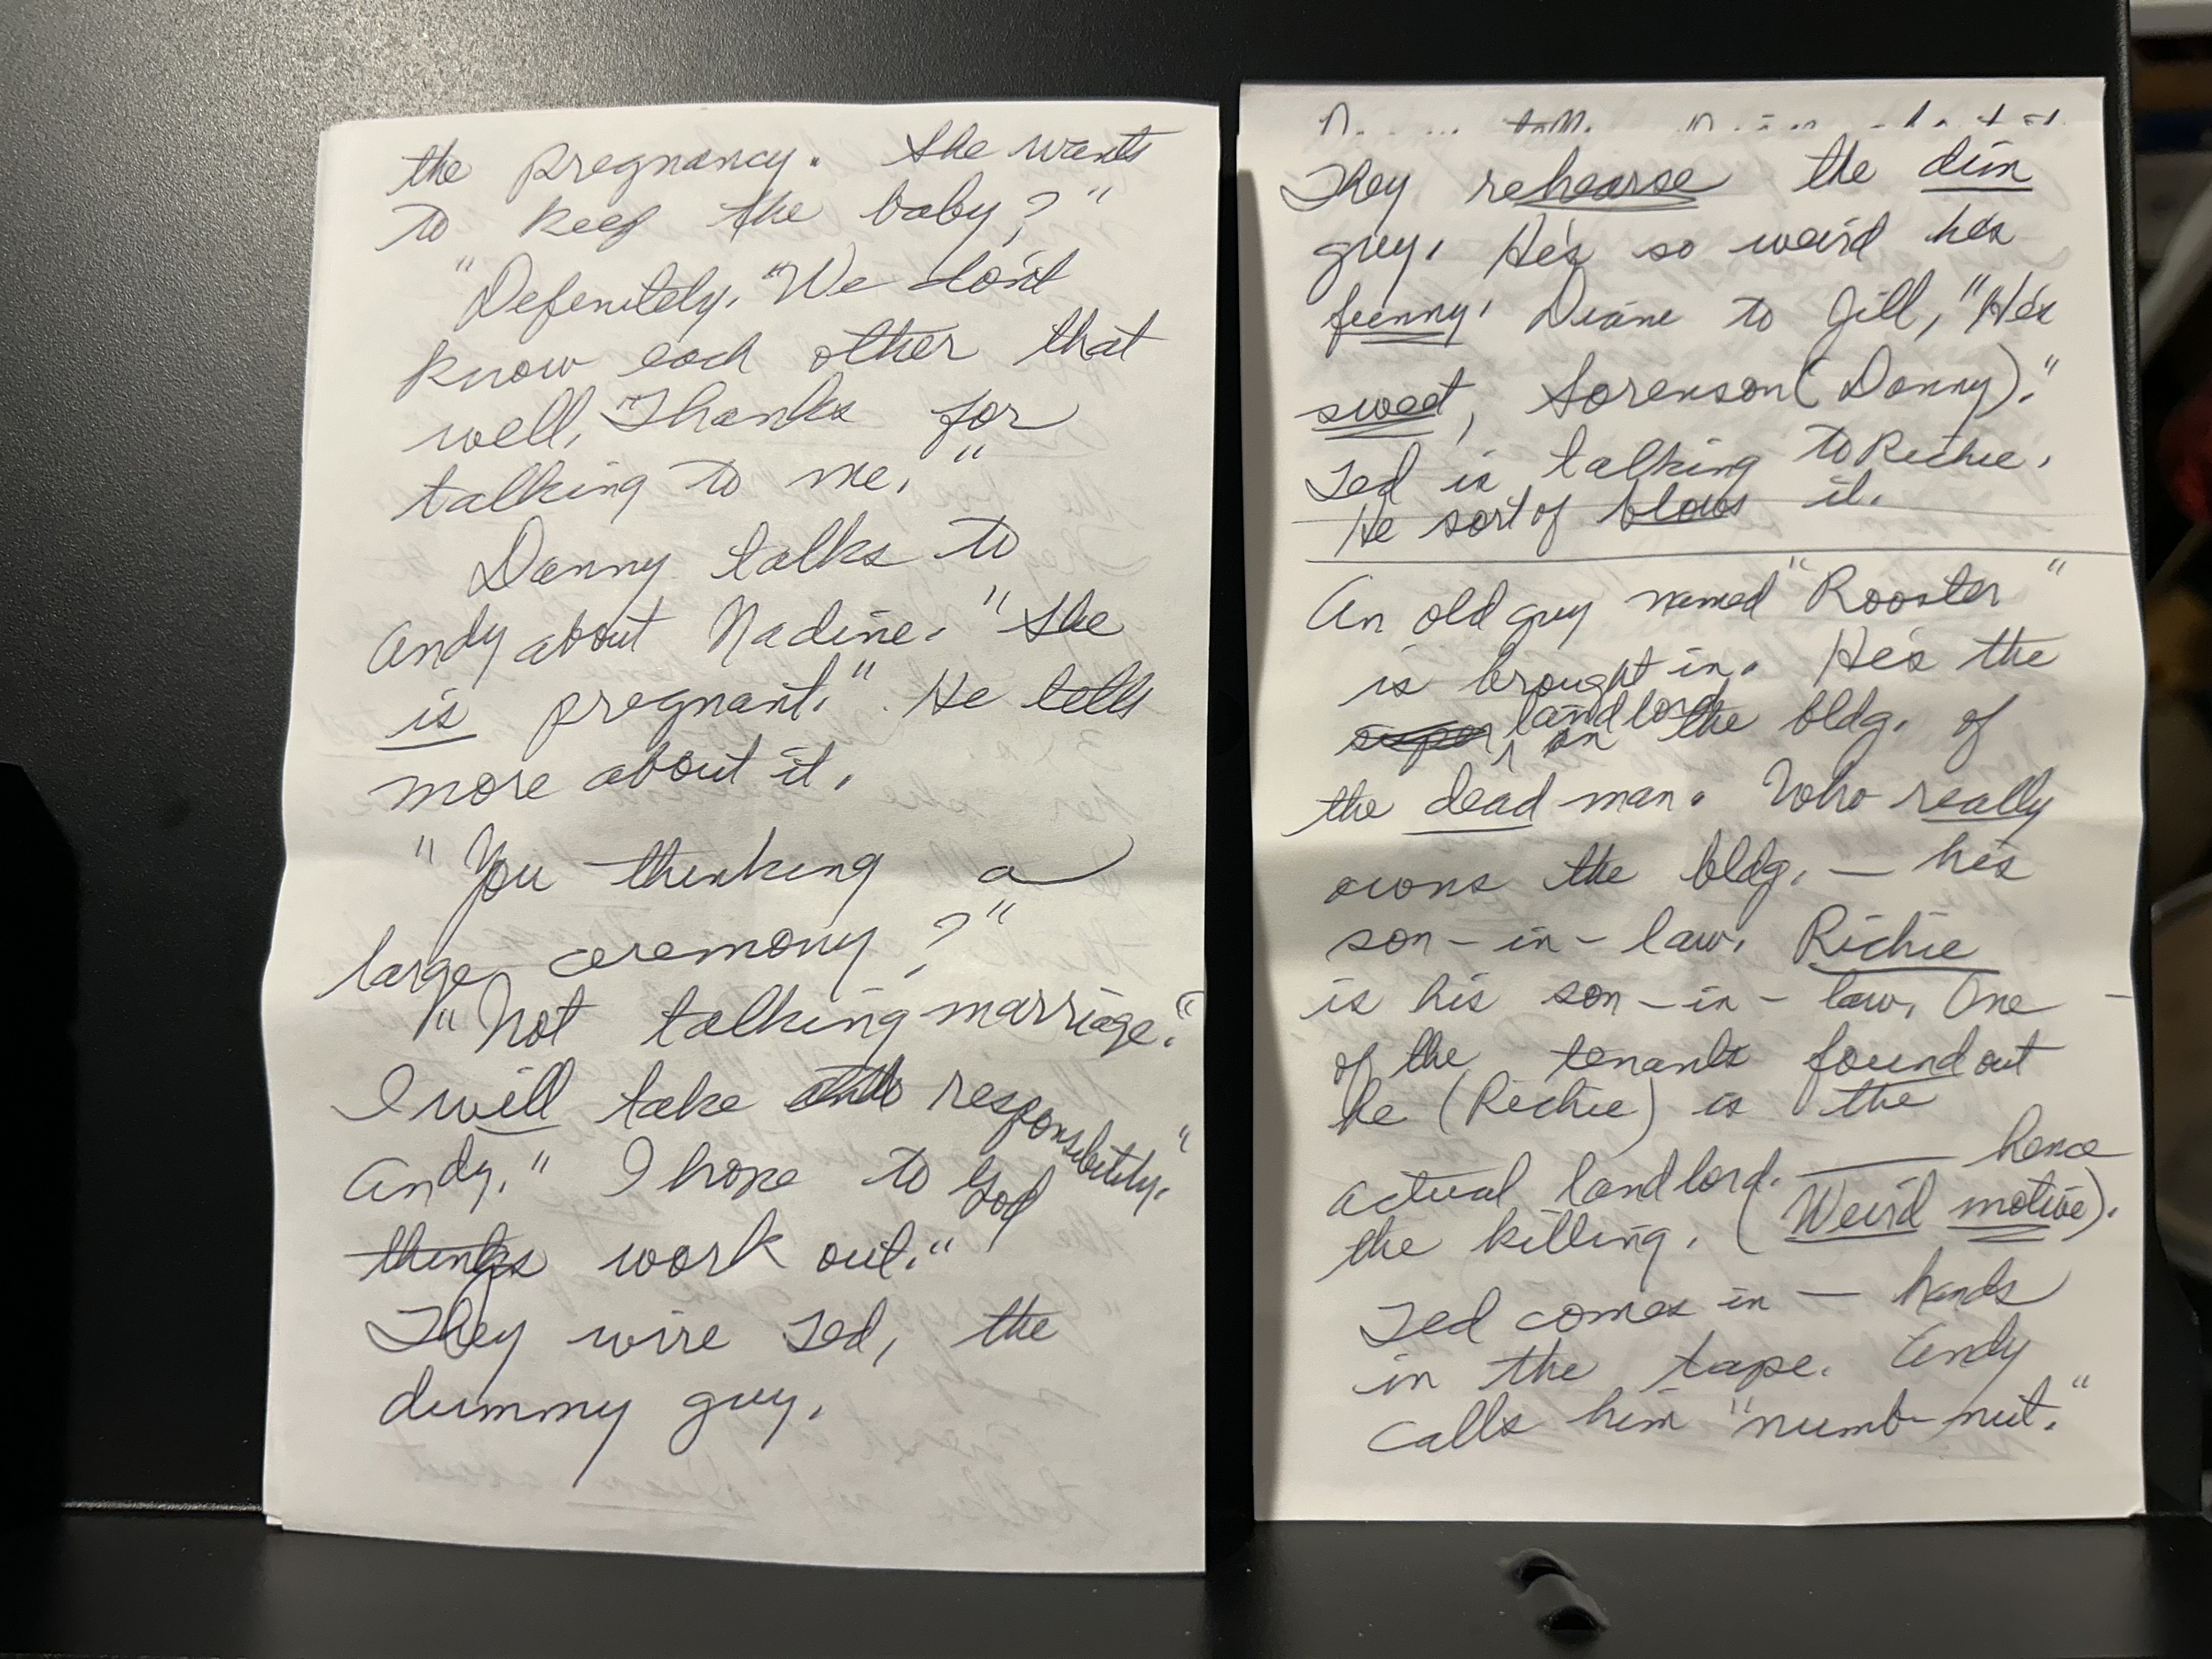 the pregnancy. She wants
to keep the baby?"
"Defenitely. "We don't
know each other that
well. "Thanks for
talking to me."
Danny talks to
Andy about Nadine. "She
is pregnant." He tells
more about it.
"You thinking a
large ceremony?"
"Not talking marriage."
I will take responsibility."
Andy." I hope to God
things work out."
They wire Ted, the
dummy guy.
They rehearse the dim
guy. He's so weird he's
funny. Diane to Jill, "He's
sweet, Sorenson (Danny)."
Ted is talking to Richie.
He sort of blows it.
An old guy named "Rooster"
is brought in. He's the
landlord, in the bldg. of
the dead man. Who really
owns the bldg. — his
son-in-law. Richie
is his son-in-law. One -
of the tenants found out
he (Richie) is the
actual landlord. — hence
the killing. (Weird motive).
Ted comes in — hands
in the tape. Andy
calls him "numb-nut."